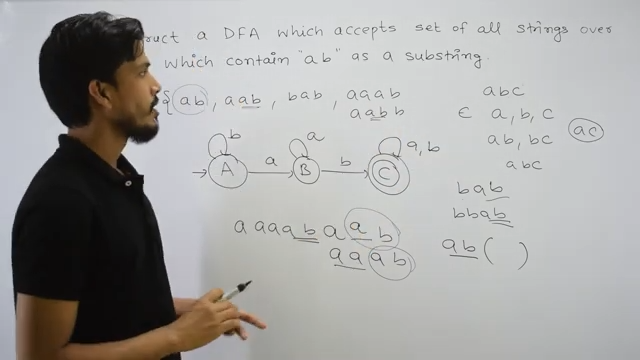 ruct a DFA which accepts set of all strings over
which contain "ab" as a substring.
{ab, aab, bab, aaab
aabb
abc
ε a, b, c
ab, bc ac
abc
b a a, b
A a B b C
bab
bbab
aaaabaab
aaab
ab( )